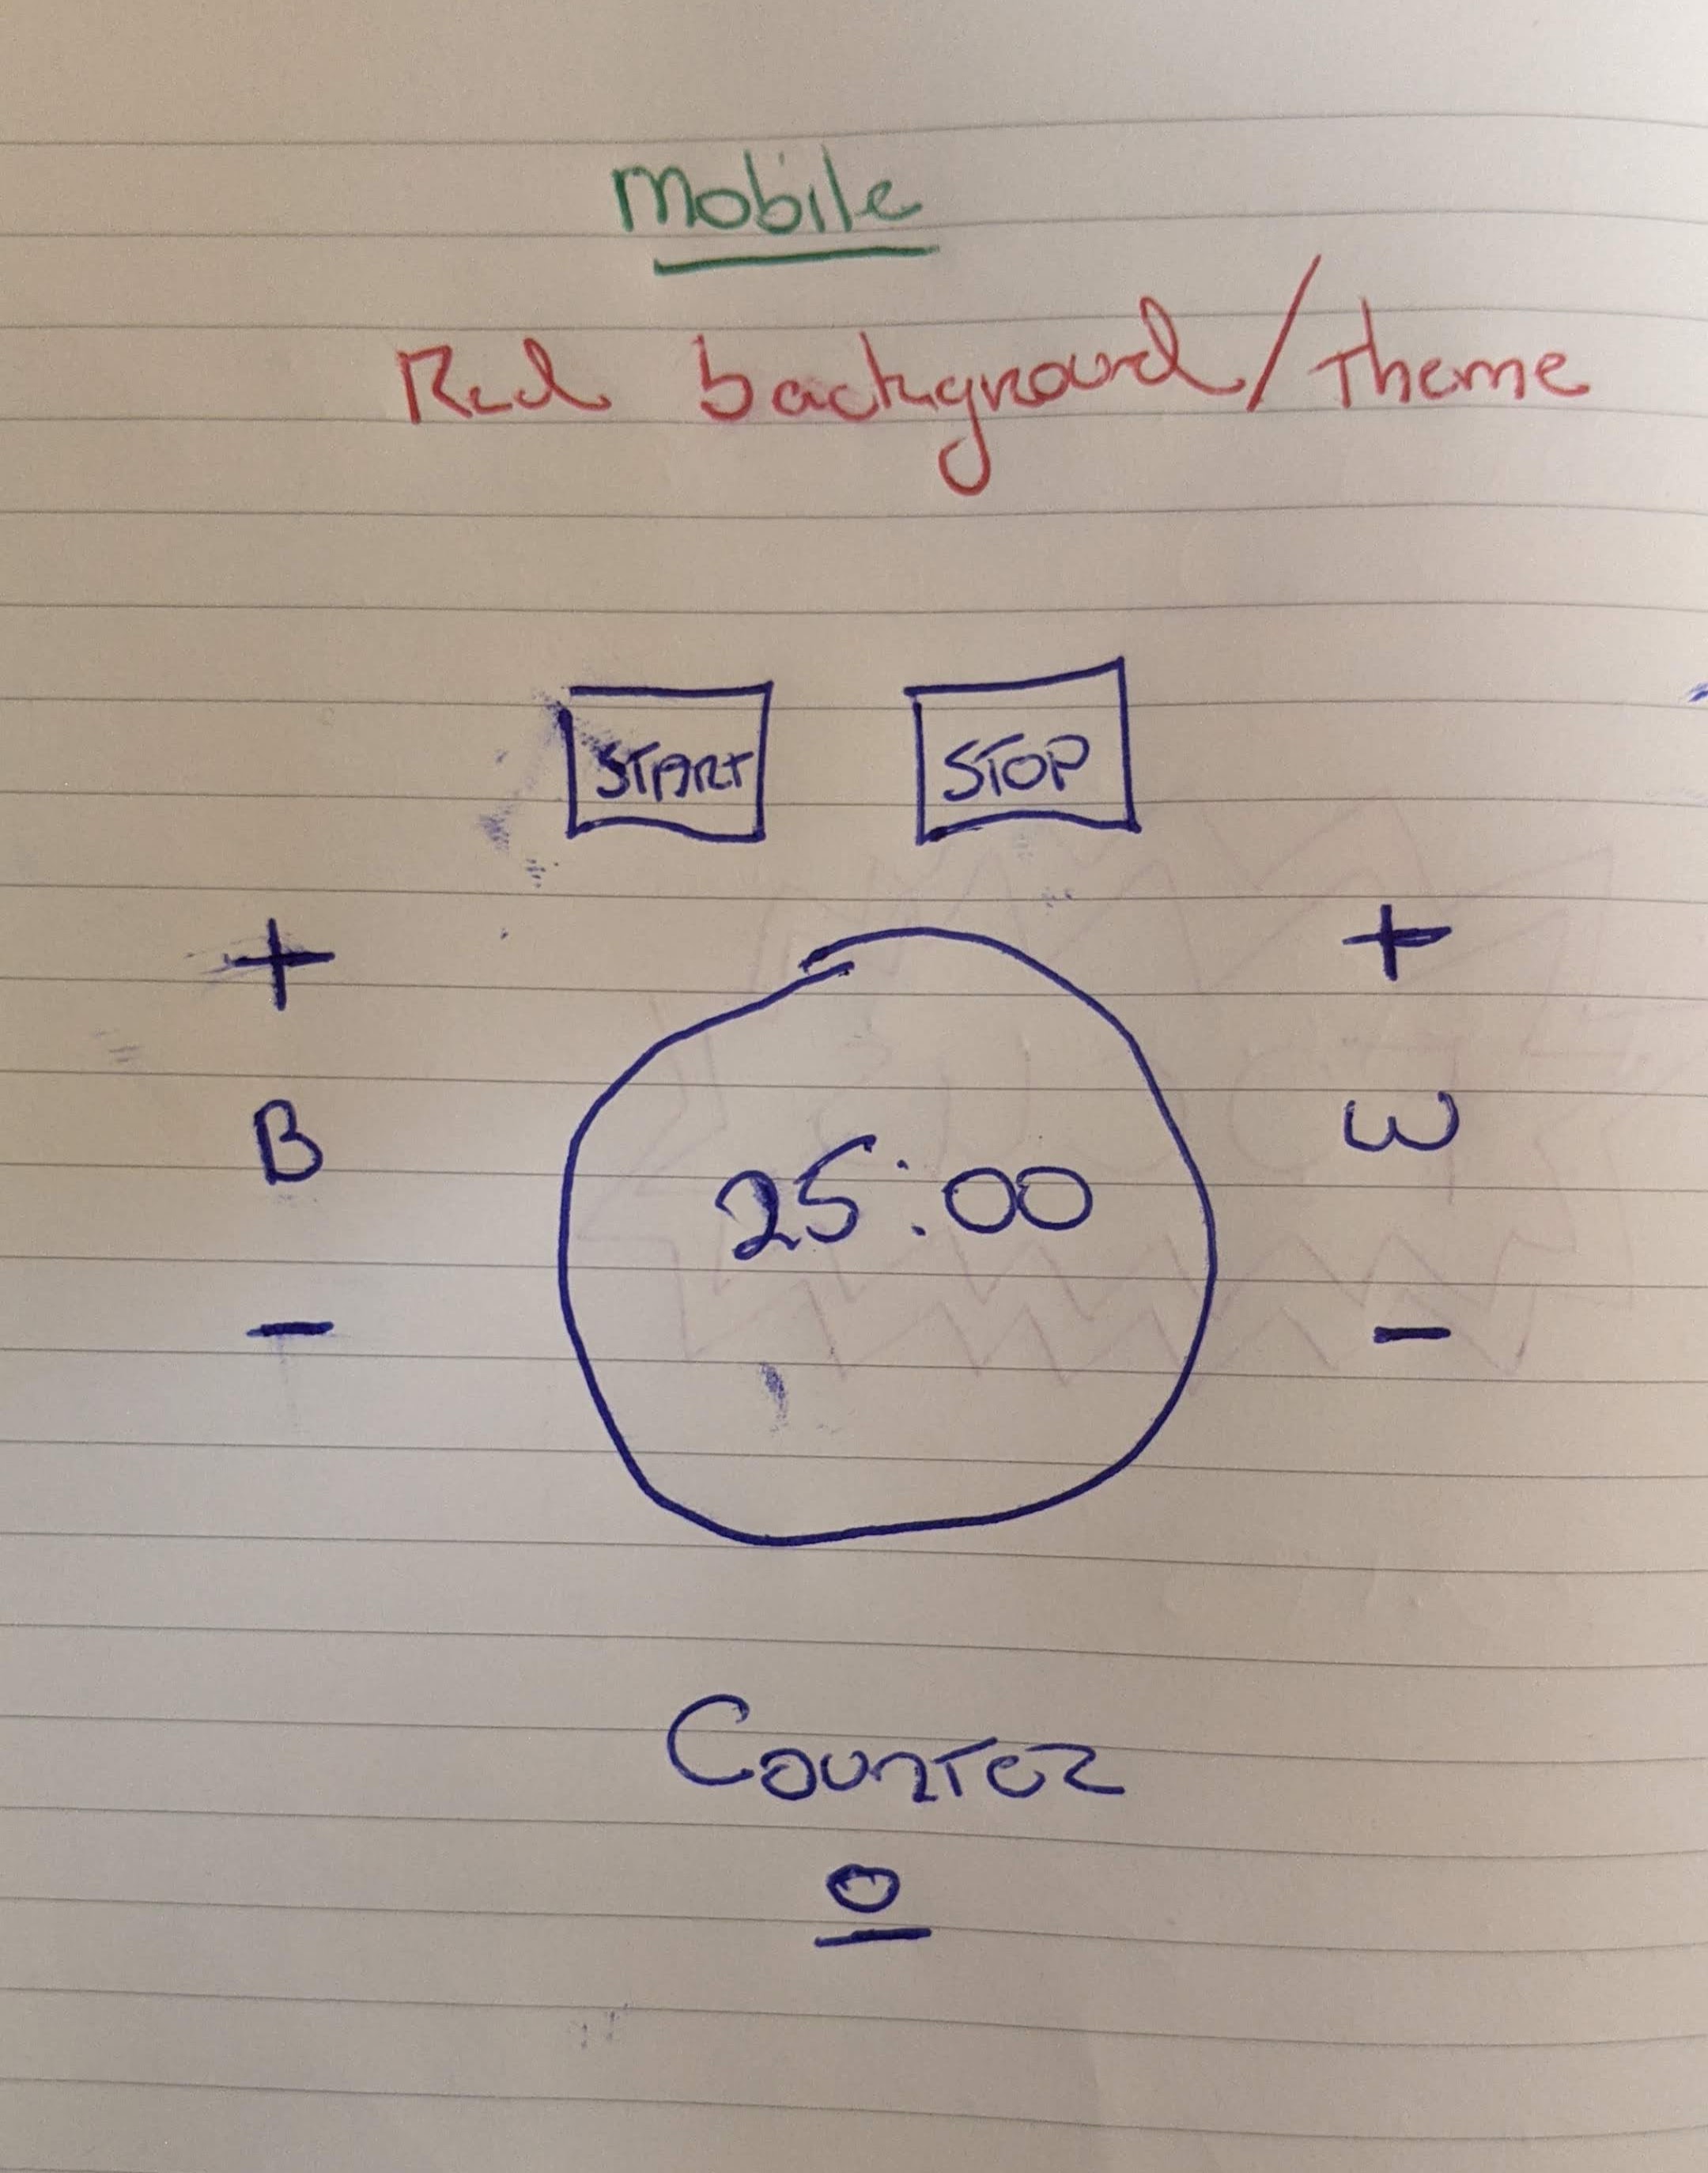 Mobile
Red background/Theme
START STOP
+ +
B W
25:00
- -
Counter
0